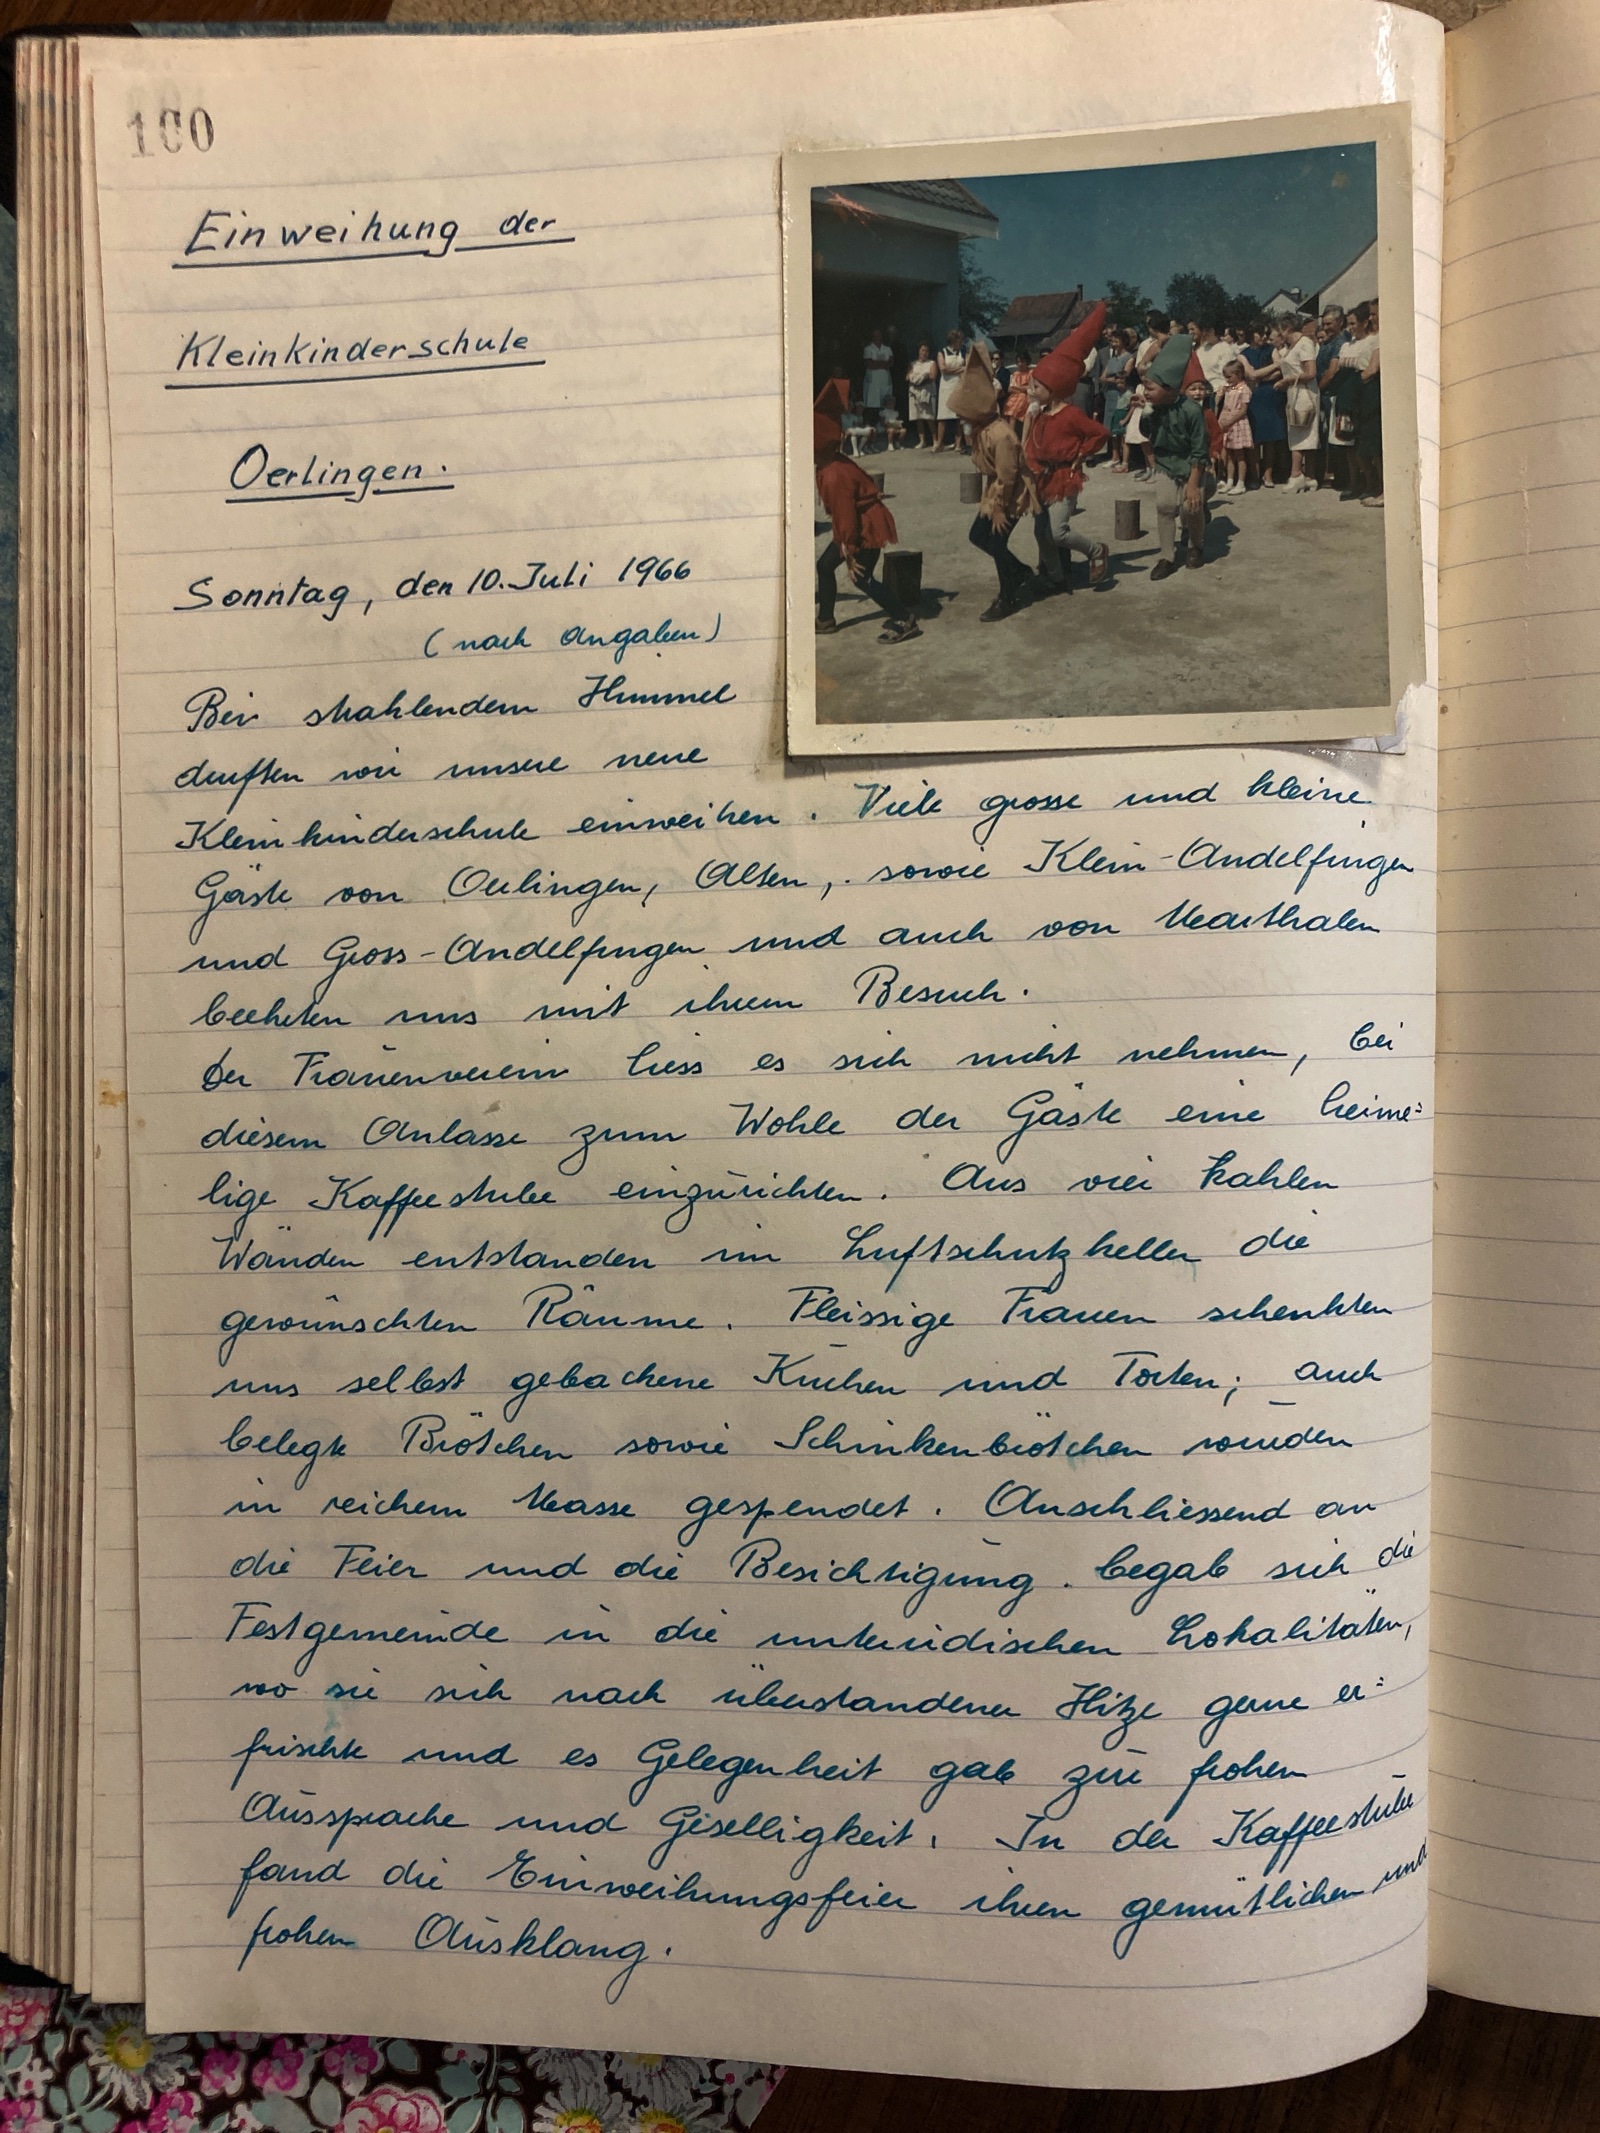 100
Einweihung der
Kleinkinderschule
Oerlingen.
Sonntag, den 10. Juli 1966
(nach Angaben)
Bei strahlendem Himmel
durften wir unsere neue
Kleinkinderschule einweihen. Viele grosse und kleine
Gäste von Oerlingen, Alten, sowie Klein-Andelfingen
und Gross-Andelfingen und auch von Marthalen
beehrten uns mit ihrem Besuch.
Der Frauenverein liess es sich nicht nehmen, bei
diesem Anlasse zum Wohle der Gäste eine heime=
lige Kaffeestube einzurichten. Aus vier kahlen
Wänden entstanden im Luftschutzkeller die
gewünschten Räume. Fleissige Frauen schenkten
uns selbst gebackene Kuchen und Torten; auch
belegte Brötchen sowie Schinkenbrötchen wurden
in reichem Masse gespendet. Anschliessend an
die Feier und die Besichtigung. begab sich die
Festgemeinde in die unterirdischen Lokalitäten,
wo sie sich nach überstandener Hitze gerne er=
frischte und es Gelegenheit gab zur frohen
Aussprache und Geselligkeit. In der Kaffeestube
fand die Einweihungsfeier ihren gemütlichen und
frohen Ausklang.